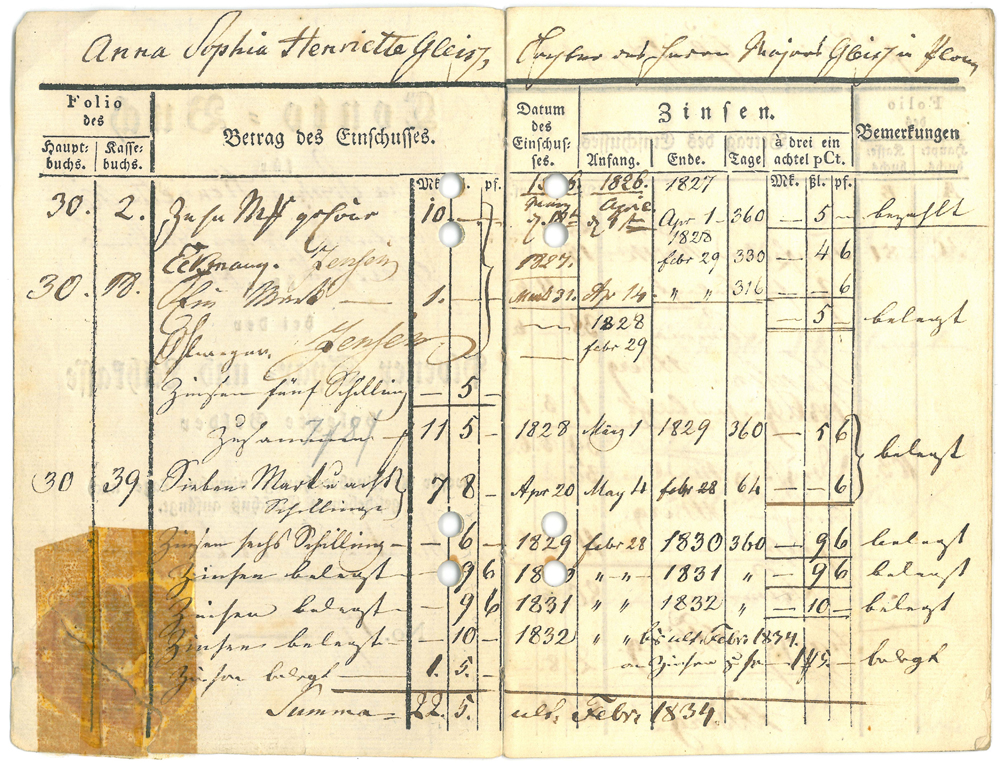 Anna Sophia Henriette Gleiss, Tochter des Herrn Majors Gleiss in Ploen
Folio des
Haupt-buchs. Kasse-buchs.
Betrag des Einschusses.
Datum des Einschus-ses.
Zinsen.
Anfang. Ende. Tage à drei ein achtel pCt.
Bemerkungen
Mk. ßl. pf. Mk. ßl. pf.
1826. 1827
30. 2. Zehn 10. — März April Apr 1 — 360 — 5 — bezahlt
1828
Jensen 1827. febr 29 330 — 4 6
30. 18. Ein Mark — 1. — März 31. Apr 14. " " 316 — — 6
— 5 — belegt
Jensen 1828
febr 29
Zinsen fünf Schilling — 5 —
Zusammen — 11 5 — 1828 März 1 1829 360 — 5 6
belegt
30 39. Sieben Mark u acht Schillinge 7 8 — Apr 20 May 4 febr 28 64 — — 6
Zinsen sechs Schilling — — 6 — 1829 febr 28 1830 360 — 9 6 belegt
Zinsen belegt — — 9 6 " " 1831 " — 9 6 belegt
Zinsen belegt — — 9 6 1831 " " 1832 " — 10 — belegt
Zinsen belegt — — 10 — 1832 " " bis ult. Febr. 1834.
Zinsen belegt — 1. 5. — an Zinsen 1 5. — belegt
Summa = 22. 5. ult. Febr. 1834.